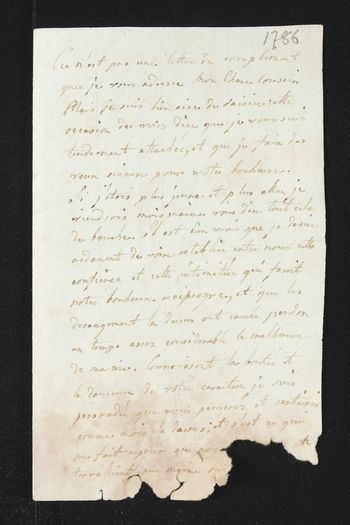 1786
Ce n'est pas une lettre de compliment
que je vous adresse Mon Cher Cousin
Mais je suis bien aise de saisir cette
occasion de vous dire que je vous suis
tendrement attachée, et que je fais des
vœux sincere pour votre bonheur.
Si j'etois plus jeune et plus alerte je
viendrois moi même vous dire tout cela
de bouche. il est bien vrai que je desire
ardament de voire retablir entre nous cette
confience et cette intimitée qui feroit
notre bonheur reciproque, et que les
derangement la dessus ont causée pendan
un temps assez considerable le malheure
de ma vie. Connoissent la bontée et
la douceur de votre caractere je suis
persuadé que vous penserez et sentirez
comme moi la dessus, c'est ce qui
me fait esperer que
travailleront au même